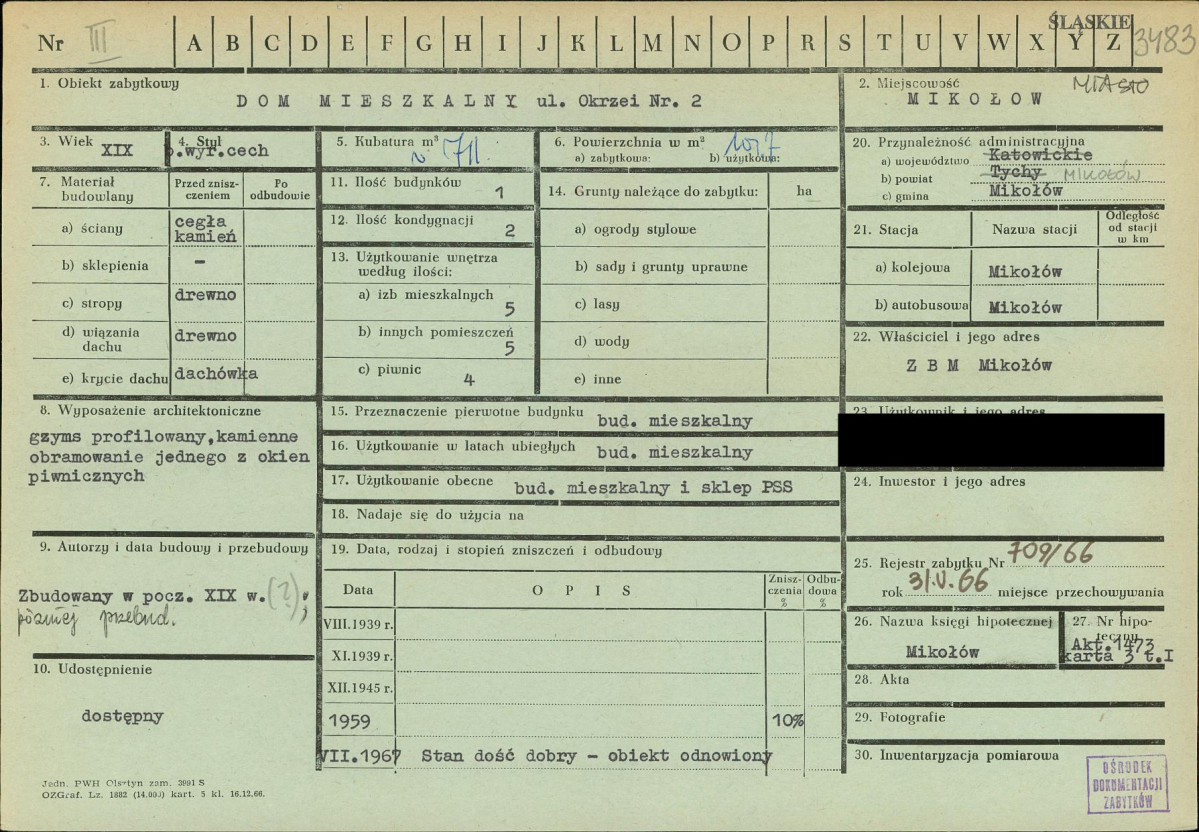 ŚLĄSKIE
Nr III A B C D E F G H I J K L M N O P R S T U V W X Y Z 3483
1. Obiekt zabytkowy
DOM MIESZKALNY ul. Okrzei Nr. 2
2. Miejscowość MIASTO
MIKOŁOW
3. Wiek XIX
4. Styl
b.wyr.cech
5. Kubatura m³ 1711
6. Powierzchnia w m²
a) zabytkowa: b) użytkowa:
20. Przynależność administracyjna
a) województwo Katowickie
b) powiat Tychy MIKOŁÓW
c) gmina Mikołów
7. Materiał budowlany
Przed zniszczeniem
Po odbudowie
a) ściany cegła kamień
b) sklepienia –
c) stropy drewno
d) wiązania dachu drewno
e) krycie dachu dachówka
11. Ilość budynków 1
12. Ilość kondygnacji 2
13. Użytkowanie wnętrza
według ilości:
a) izb mieszkalnych 5
b) innych pomieszczeń 5
c) piwnic 4
14. Grunty należące do zabytku: ha
a) ogrody stylowe
b) sady i grunty uprawne
c) lasy
d) wody
e) inne
21. Stacja Nazwa stacji Odległość od stacji w km
a) kolejowa Mikołów
b) autobusowa Mikołów
22. Właściciel i jego adres
Z B M Mikołów
8. Wyposażenie architektoniczne
gzyms profilowany,kamienne
obramowanie jednego z okien
piwnicznych
15. Przeznaczenie pierwotne budynku bud. mieszkalny
16. Użytkowanie w latach ubiegłych bud. mieszkalny
17. Użytkowanie obecne bud. mieszkalny i sklep PSS
18. Nadaje się do użycia na
23. Użytkownik i jego adres
24. Inwestor i jego adres
9. Autorzy i data budowy i przebudowy
Zbudowany w pocz. XIX w. (?),
później przebud.
10. Udostępnienie
dostępny
19. Data, rodzaj i stopień zniszczeń i odbudowy
Data OPIS Zniszczenia % Odbudowa %
VIII.1939 r.
XI.1939 r.
XII.1945 r.
1959 10%
VII.1967 Stan dość dobry – obiekt odnowiony
25. Rejestr zabytku Nr 709/66
rok 31.V.66 miejsce przechowywania
26. Nazwa księgi hipotecznej
Mikołów
27. Nr hipoteczny
Akt.1473
karta 3 t.I
28. Akta
29. Fotografie
30. Inwentaryzacja pomiarowa
OŚRODEK
DOKUMENTACJI
ZABYTKÓW
Jedn. PWH Olsztyn zam. 3991 S
OZGraf. Lz. 1882 (14.000) kart. 5 kl. 16.12.66.